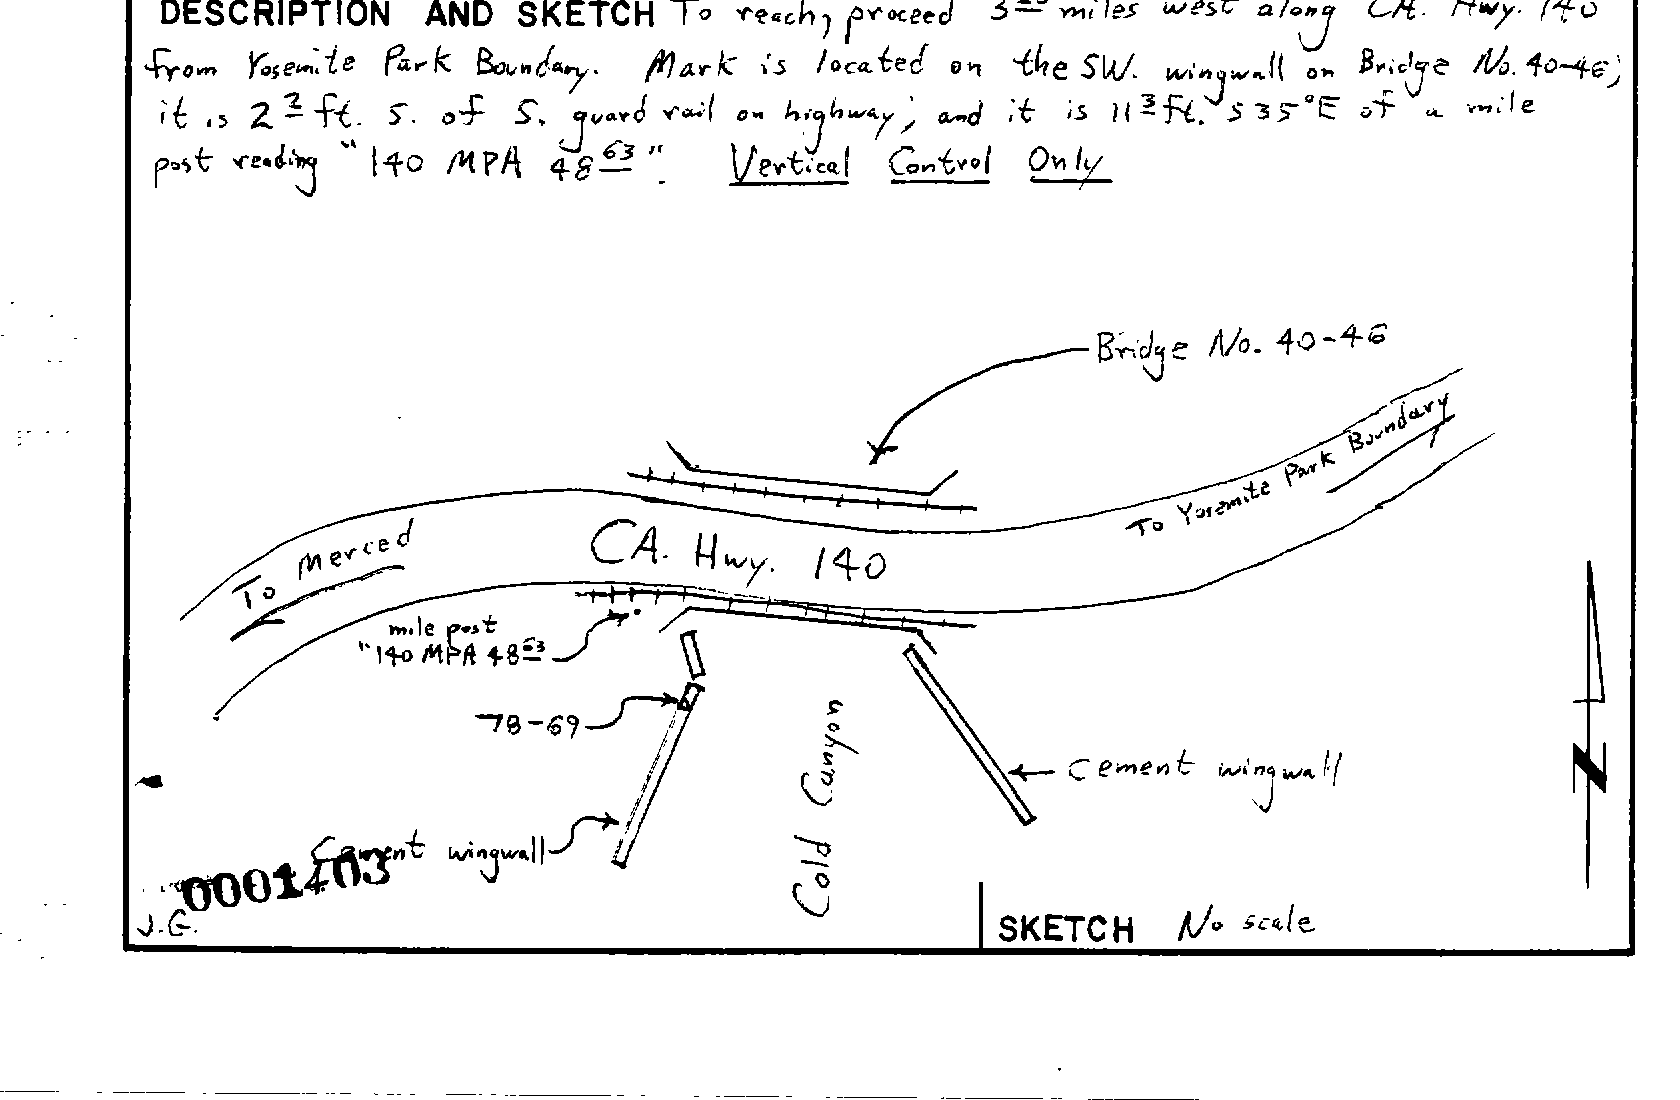 DESCRIPTION AND SKETCH To reach, proceed miles west along CA. Hwy. 140
from Yosemite Park Boundary. Mark is located on the SW. wingwall on Bridge No. 40-46;
it is 2² ft. S. of S. guard rail on highway; and it is 11³ ft. S 35°E of a mile
post reading "140 MPA 48⁶³". Vertical Control Only
Bridge No. 40-46
To Yosemite Park Boundary
To Merced
CA. Hwy. 140
mile post
"140 MPA 48⁶³
78-69
Cold Canyon
Cement wingwall
Cement wingwall
0001403
J.G.
SKETCH No scale
N